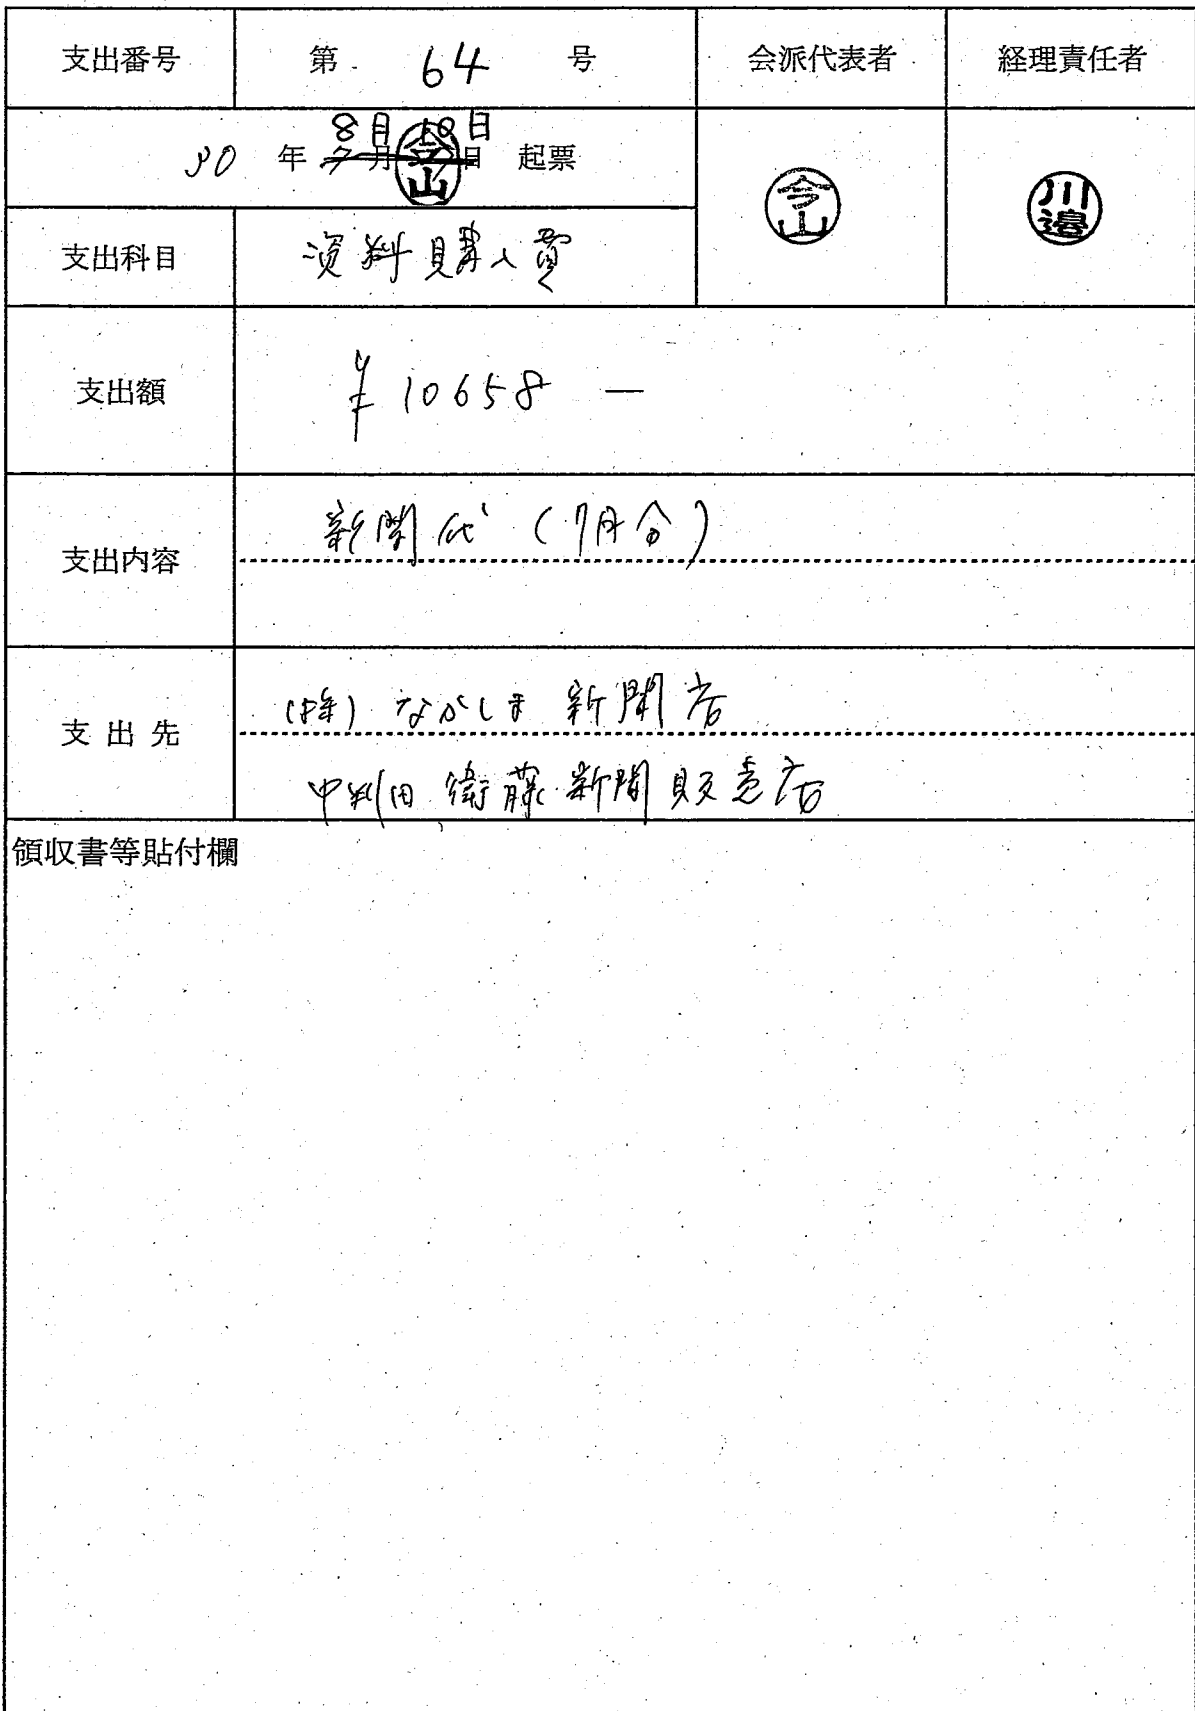 支出番号 第 64 号 会派代表者 経理責任者
8月10日
30 年 7月 日 起票
今山
今山
川邉
支出科目 資料購入費
支出額 ¥10658 ―
支出内容 新聞代(7月分)
支出先 (株)ながしま新聞店
中判田 衛藤新聞販売店
領収書等貼付欄